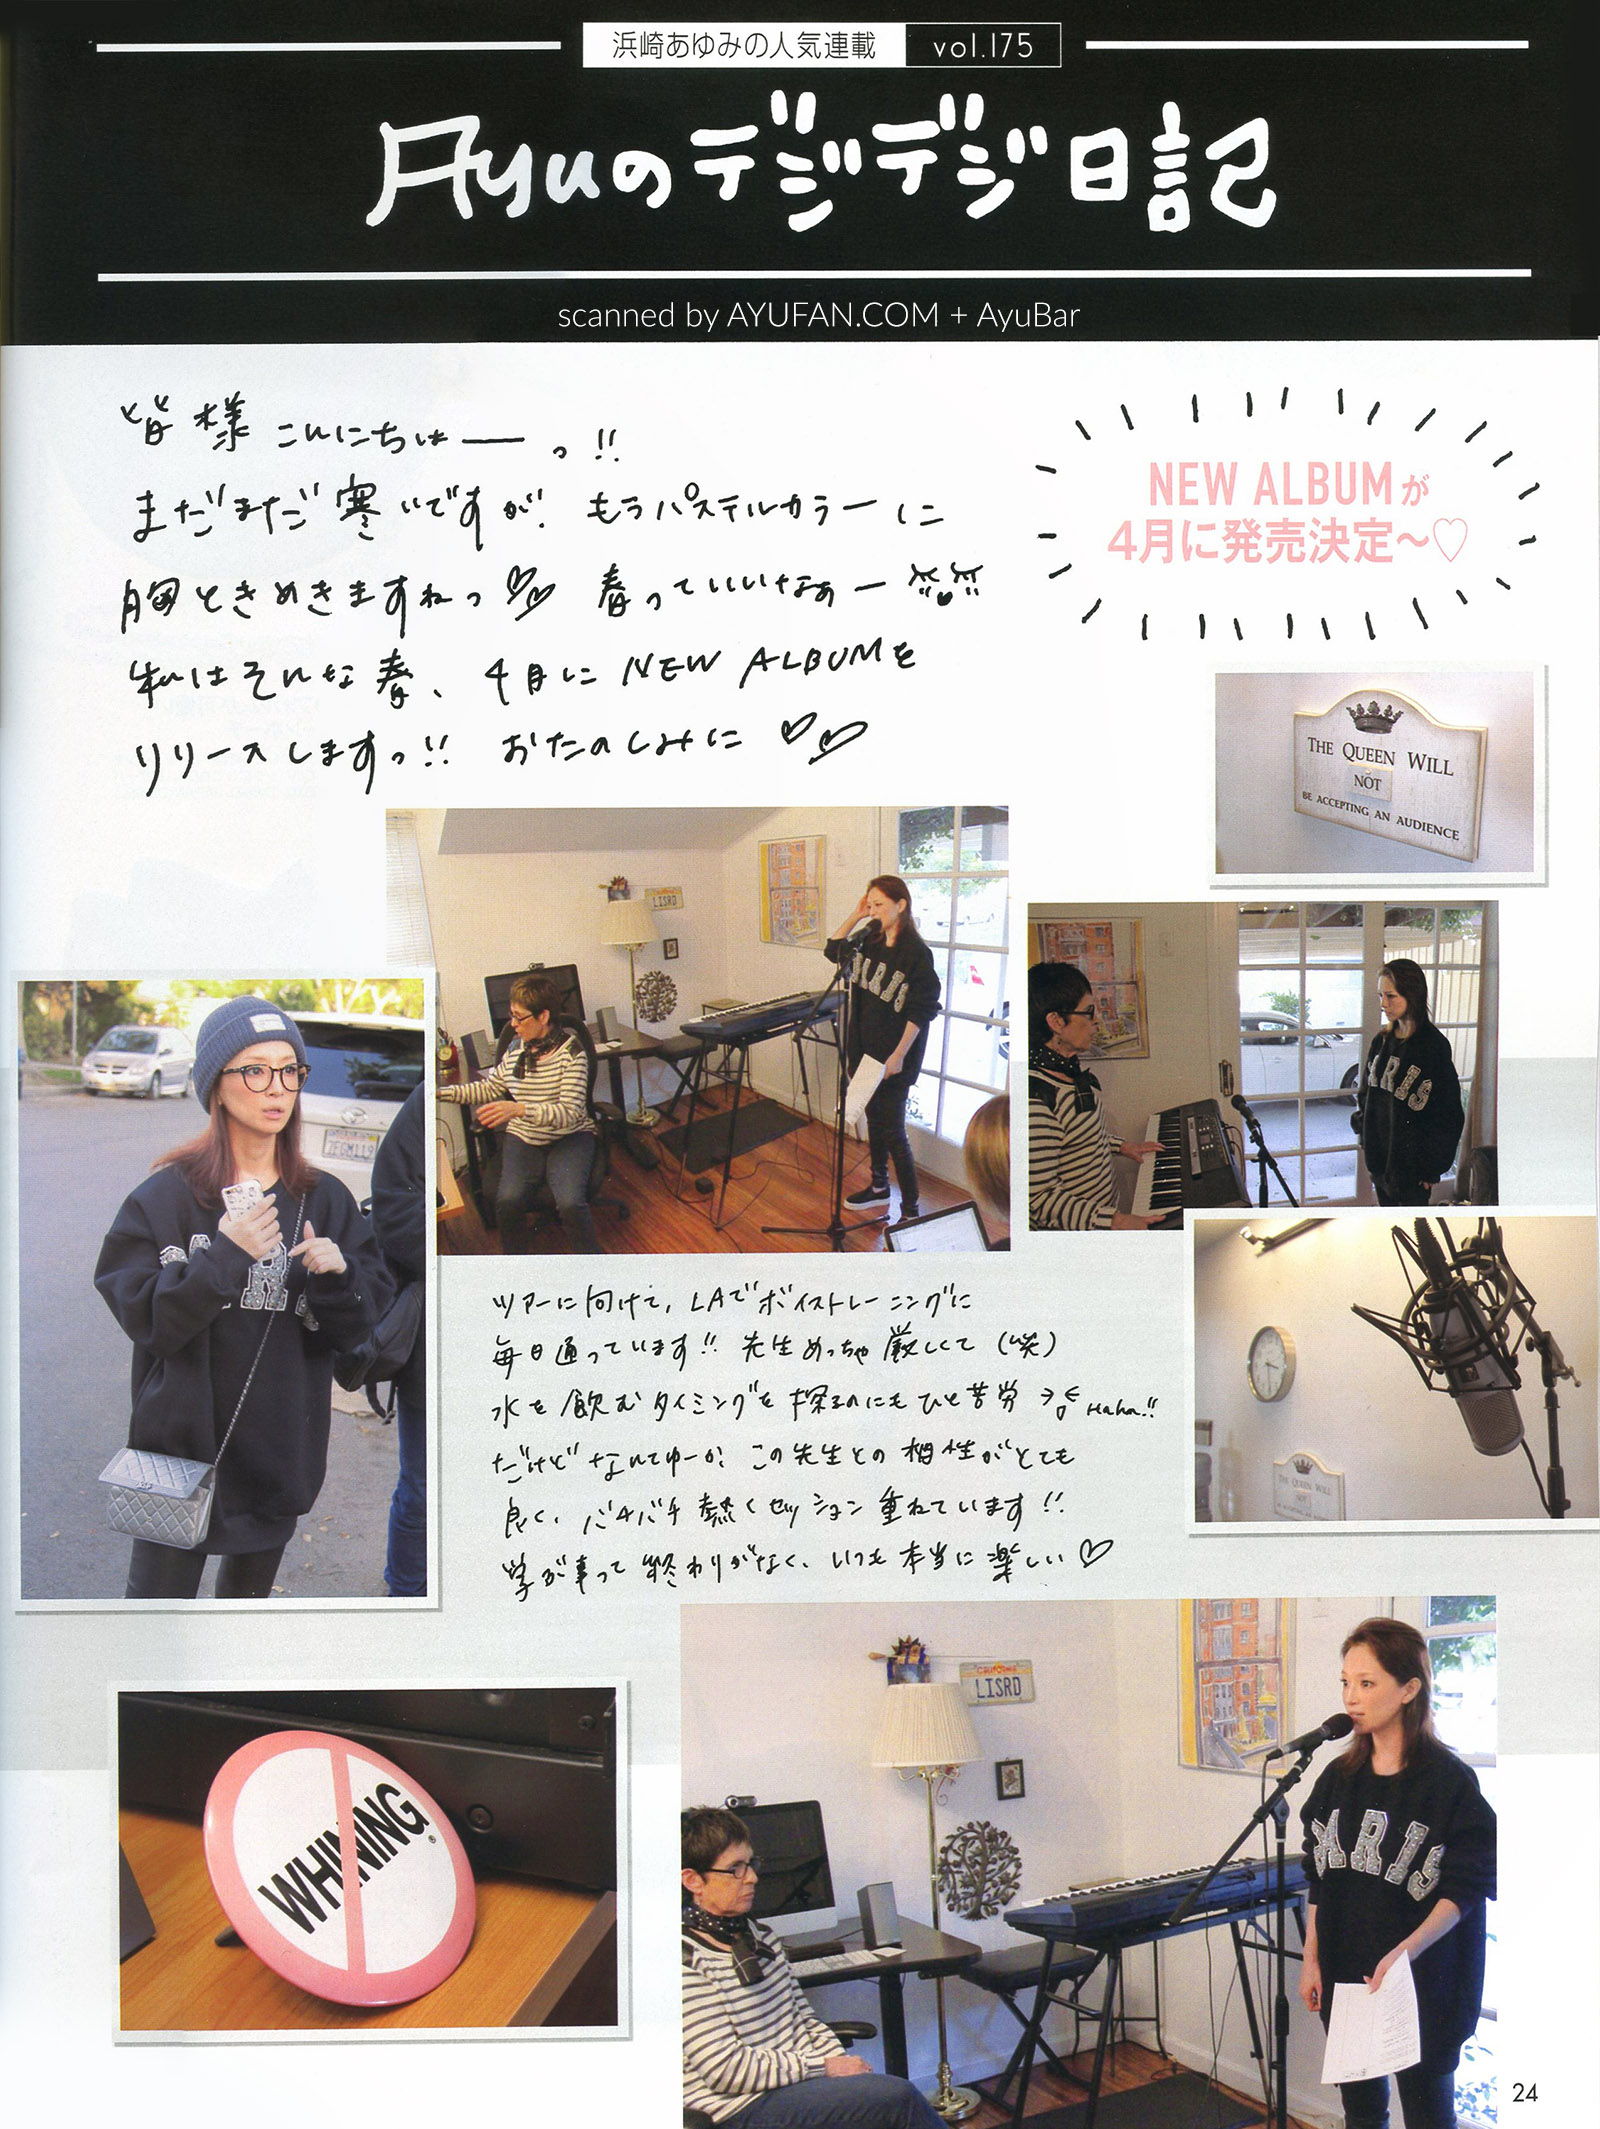 浜崎あゆみの人気連載 vol.175
Ayuのデジデジ日記
scanned by AYUFAN.COM + AyuBar
皆様 こんにちはーっ!!
まだまだ寒いですが、もうパステルカラーに
胸ときめきますねっ♡♡ 春っていいなぁー
私はそんな春、4月に NEW ALBUMを
リリースしますっ!! おたのしみに ♡♡
NEW ALBUMが
4月に発売決定〜♡
THE QUEEN WILL
NOT
BE ACCEPTING AN AUDIENCE
LISRD
PARIS
ARIS
7FGM119
ツアーに向けて、LAでボイストレーニングに
毎日通っています!! 先生めっちゃ厳しくて(笑)
水を飲むタイミングを探るのにもひと苦労 Haha!!
だけどなんてゆーか、この先生との相性がとても
良く、バチバチ熱くセッション重ねています!!
学ぶ事って終わりがなく、いつも本当に楽しい♡
THE QUEEN WILL
NOT
WHINING®
CALIFORNIA
LISRD
PARIS
24